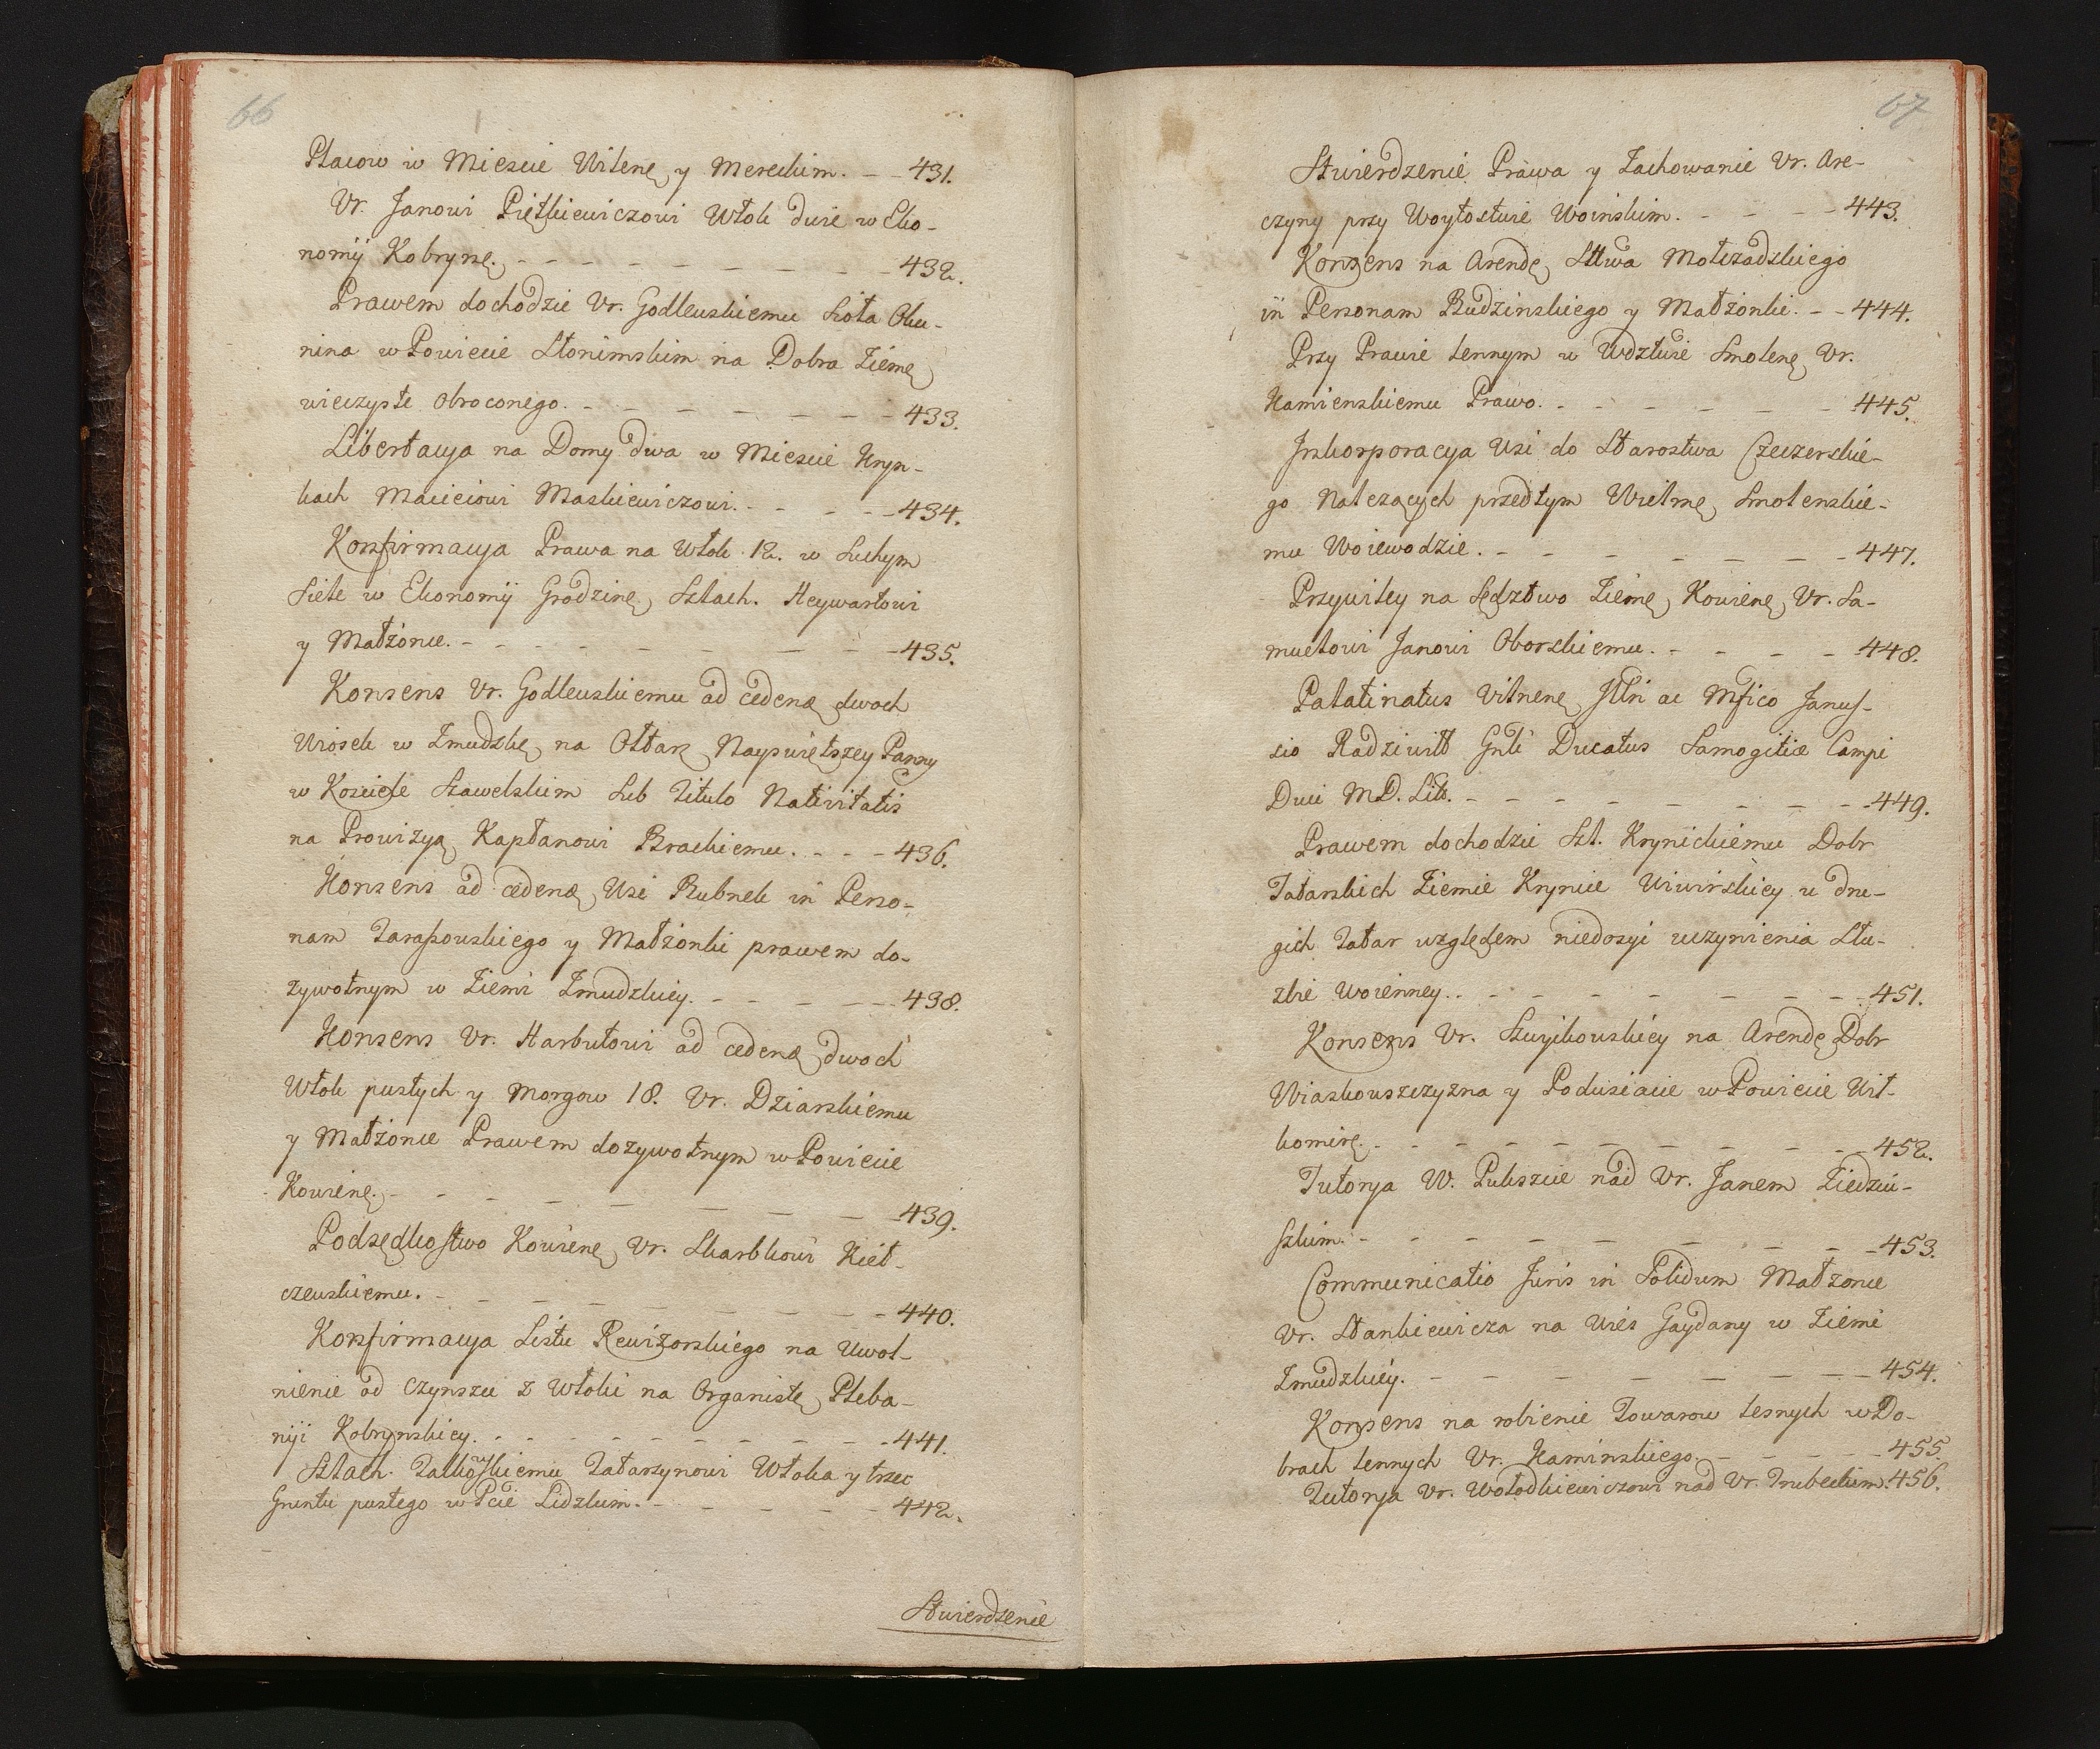 66
Placow w Miescie Wilenę y Mereckim. – – 431.
Ur. Janowi Piętkiewiczowi Włok dwie w Eko-
nomij Kobrynę. – – – – – – – – 432.
Prawem dochodzic Ur. Godlewskiemu Sioła Oku-
nina w Powiecie Słonimskim na Dobra Ziemę
wieczyste obroconego. – – – – – – – 433.
Libertacya na Domy dwa w Miescie Kryn-
kach Maciciowi Maskiewiczowi. – – – – 434.
Konfirmacya Prawa na Włok 12. w Suchym
Siele w Ekonomij Grodzinę, Szlach. Heywartowi
y Małżonce. – – – – – – – – – 435.
Konsens Ur. Godlewskiemu ad cedenę, dwoch
Wiosek w Zmudskę, na Ołtarz Nayswiętszey Panny
w Kosciele Szawelskim Sub Titulo Nativitatis
na Prowizyą Kapłanowi Brackiemu. – – – 436.
Konsens ad cedenę, Wsi Rubnek in Perso-
nam Tarassowskiego y Małżonki prawem do-
zywotnym w Ziemi Zmudzkiey. – – – – – 438.
Konsens Ur. Harbutowi ad cedenę, dwoch
Włok pustych y Morgow 18. Ur. Dziarskiemu
y Małżonce Prawem dozywotnym w Powiecie
Kowienę. – – – – – – – – 439.
Podsędkostwo Kowienę, Ur. Skarbkowi Kieł-
czewskiemu. – – – – – – – – – 440.
Konfirmacya Listu Rewizorskiego na Uwol-
nienie od Czynszu z Włoki na Organistę, Pleba-
niji Kobrynskiey. – – – – – – – – – 441.
Szlach. Talkowskiemu Tatarzynowi Włoka y trzec
Gruntu pustego w Pcie Lidzkim. – – – – – 442.
Stwierdzenie
67
Stwierdzenie Prawa y Zachowanie Ur. Are-
czyny przy Woytostwie Woinskim. – – – – 443.
Konsens na Arendę, Sttwa Mołczadzkiego
in Personam Rudzinskiego y Małżonki. – – 444.
Przy Prawie lennym w Wdztwie Smolenę, Ur.
Kamienskiemu Prawo. – – – – – – – 445.
Inkorporacya Wsi do Starostwa Czeczerskie-
go Nalezących przedtym Wielmę, Smolenskie-
mu Woiewodzie. – – – – – – – – 447.
Przywiley na Sędztwo Ziemę, Kowienę, Ur. Sa-
muelowi Janowi Oborskiemu. – – – – – 448.
Palatinatus Vilnenę, Illri ac Mfico Janus-
sio Radziwiłł Gnli Ducatus Samogitiæ Campi
Duci M.D. Litt. – – – – – – – – – 449.
Prawem dochodzic Szl. Krynickiemu Dobr
Tatarskich Ziemie Krynce Wiwirskiey u dru-
gich Tatar względem niedosyć uczynienia Słu-
zbie Woienney. – – – – – – – – – 451.
Konsens Ur. Szuykowskiey na Arendę, Dobr
Wiaskowszczyzna y Podusiacie w Powiecie Wił-
komirę. – – – – – – – – – – – 452.
Tutorya W. Pukszcie nad Ur. Janem Ziedziń-
skim. – – – – – – – – – – 453.
Communicatio Juris in Solidum Małzonce
Ur. Stankiewicza na Wies Gaydany w Ziemi
Zmudzkiey. – – – – – – – – – 454.
Konsens na robienie Towarow lesnych w Do-
brach lennych Ur. Kaminskiego. – – – – – 455.
Tutorya Ur. Wołodkiewiczowi nad Ur. Trubeckim. 456.